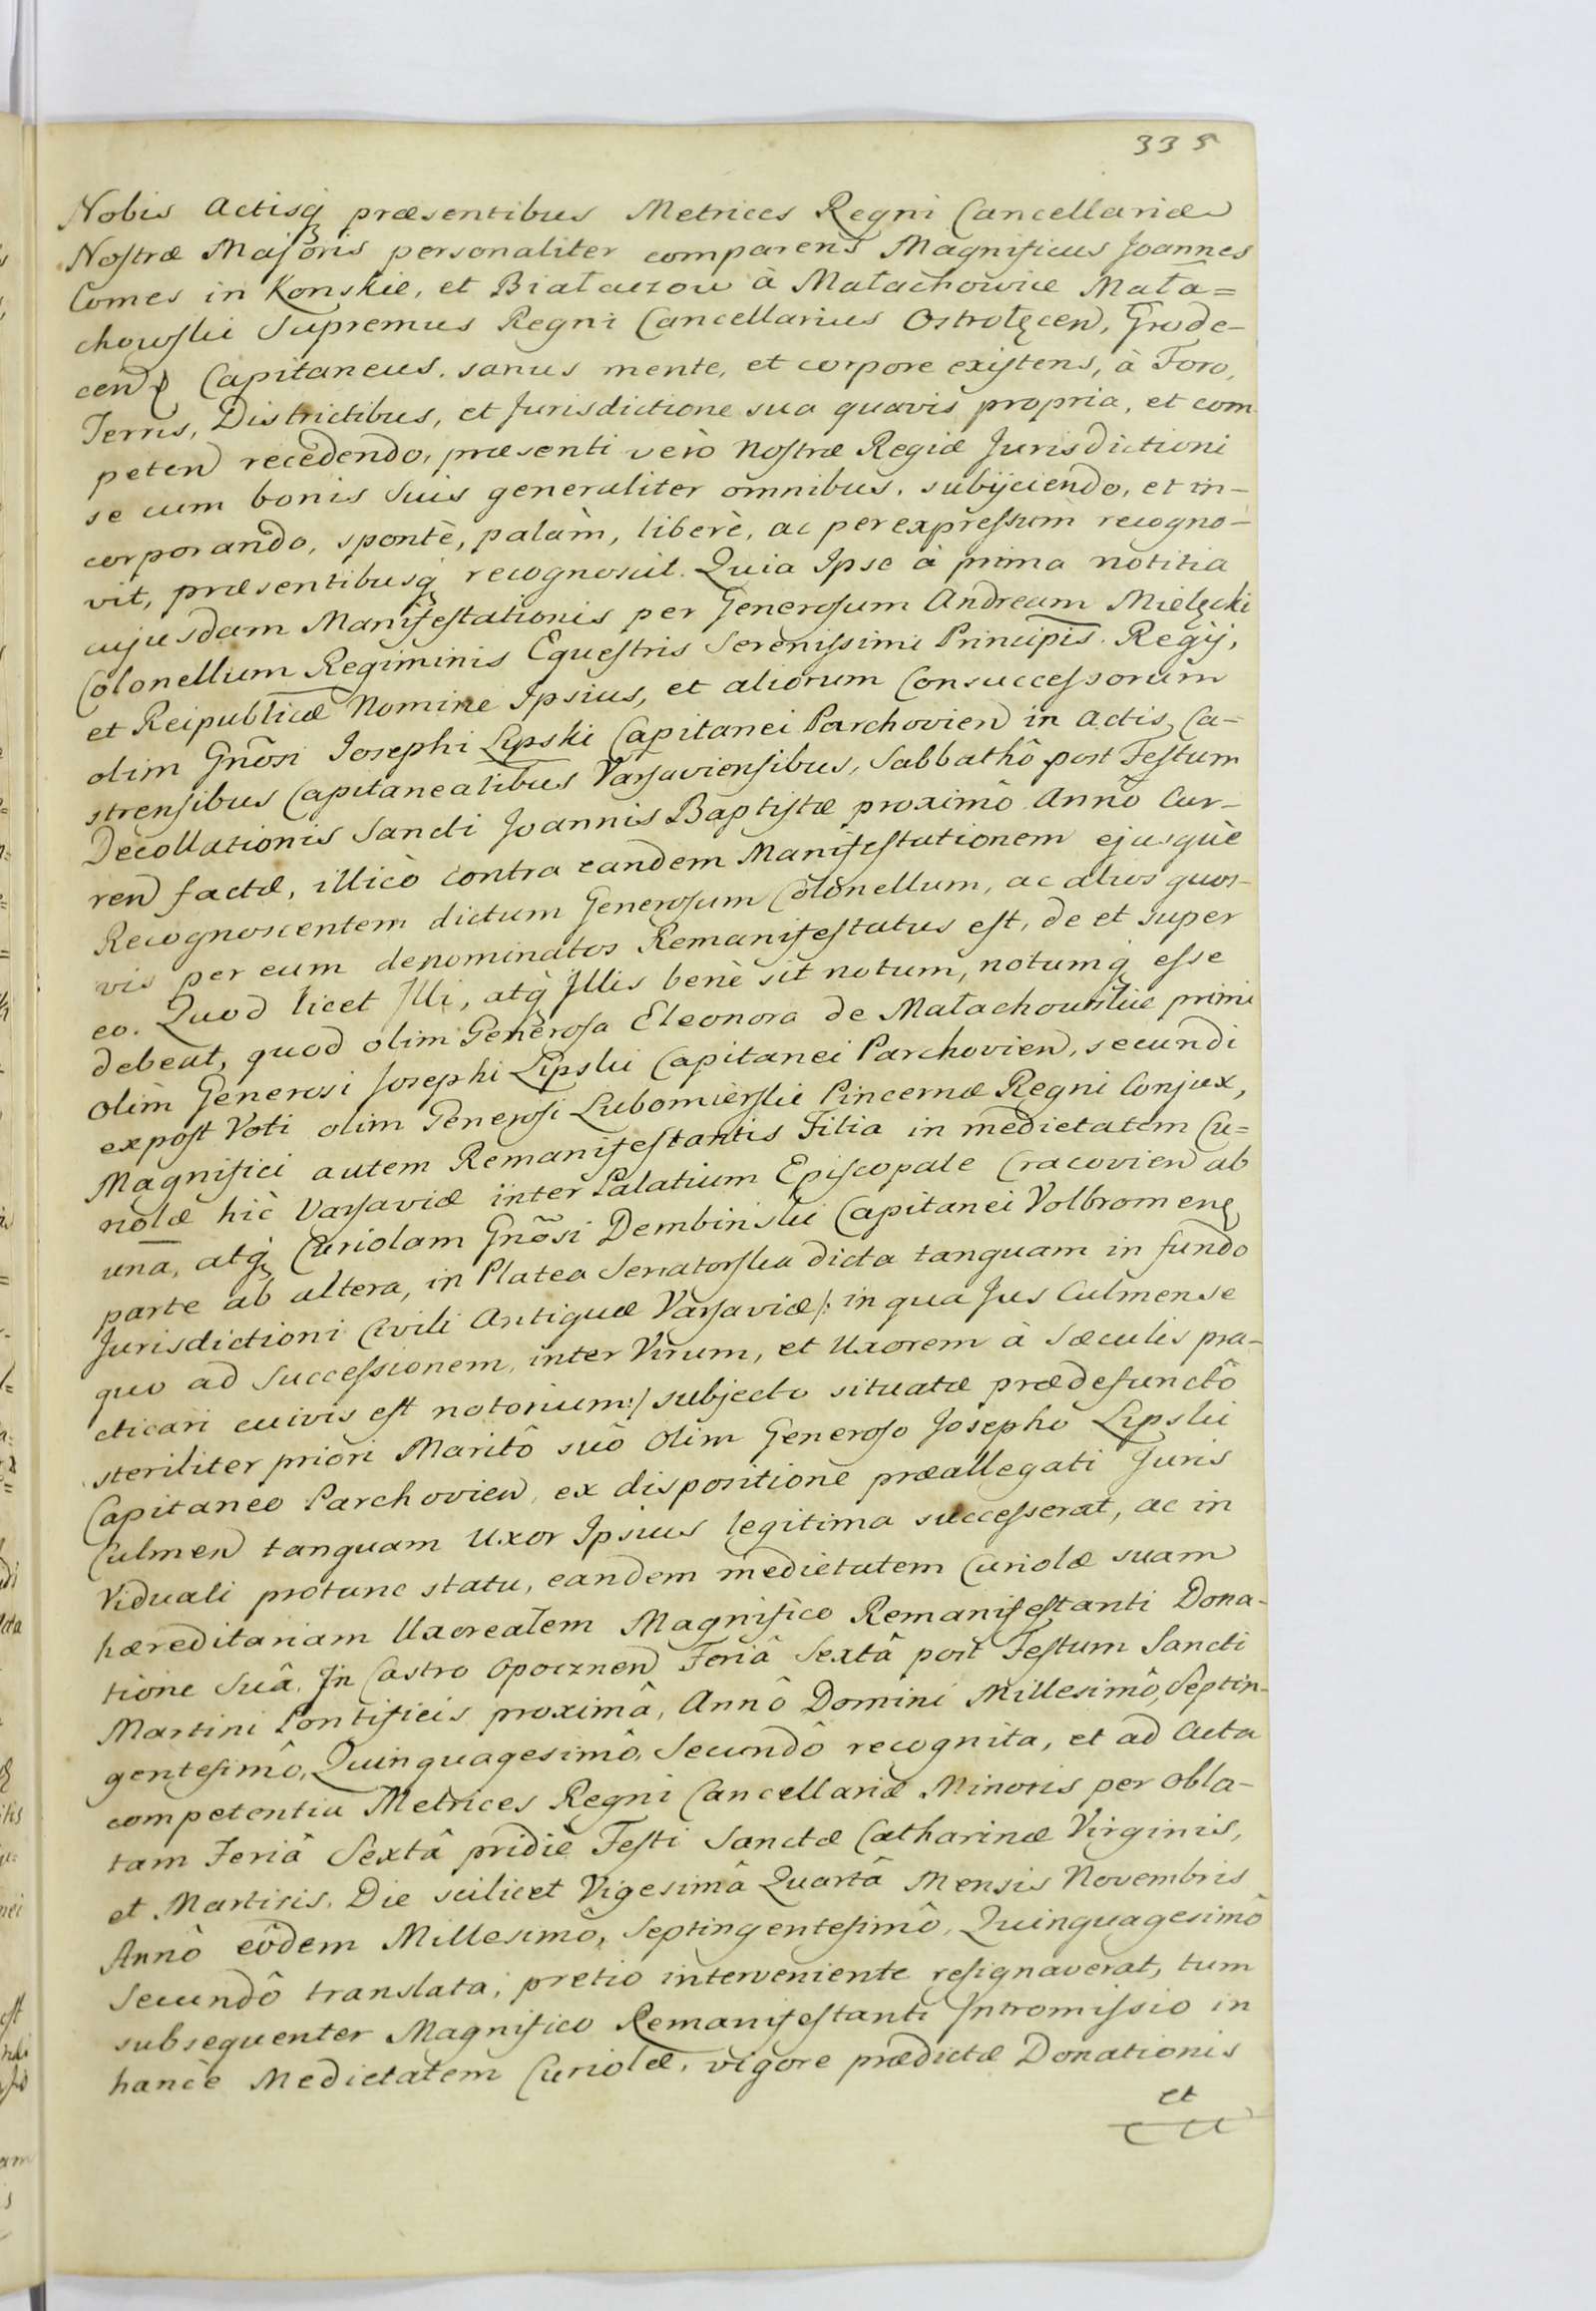 335
Nobis Actisq præsentibus Metrices Regni Cancellariæ
Nostræ Majoris personaliter comparens Magnificus Joannes
Comes in Konskie, et Białaczow à Małachowice Mała=
chowski Supremus Regni Cancellarius Ostrołęcen, Grode-
cenq Capitaneus. sanus mente, et corpore existens, à Foro,
Terris, Districtibus, et Jurisdictione sua quavis propria, et com
peten recedendo, præsenti verò Nostræ Regiæ Jurisdictioni
se cum bonis Suis generaliter omnibus, subijciendo, et in-
corporando, spontè, palàm, liberè, ac per expressum recogno-
vit, præsentibusq recognoscit. Quia Ipse à prima notitia
cujusdam Manifestationis per Generosum Andream Mielęcki
Colonellum Regiminis Equestris Serenissimi Principis Regij,
et Reipublicæ Nomine Ipsius, et aliorum Consuccessorum
olim Gnõsi Josephi Lipski Capitanei Parchovien in Actis Ca-
strensibus Capitanealibus Varsaviensibus, Sabbathô post Festum
Decollationis Sancti Joannis Baptistæ proximô Annô Cur-
ren factæ, illicò contra eandem Manifestationem ejusquè
Recognoscentem dictum Generosum Colonellum, ac alios quos-
vis per eum denominatos Remanifestatus est, de et super
eo. Quod licet Illi, atq Illis benè sit notum, notumq esse
debeat, quod olim Generosa Eleonora de Małachowskie primi
olim Generosi Josephi Lipski Capitanei Parchovien, secundi
expost Voti olim Generosi Lubomirski Pincernæ Regni Conjux,
Magnifici autem Remanifestantis Filia in medietatem Cu=
riolæ hic Varsaviæ inter Palatium Episcopale Cracovien ab
una, atq Curiolam Gnõsi Dembinski Capitanei Volbromenq
parte ab altera, in Platea Senatorska dicta tanquam in fundo
Jurisdictioni Civili Antiquæ Varsaviæ /: in qua Jus Culmense
quo ad Successionem, inter Virum, et Uxorem à Sæculis pra-
cticari cuivis est notorium :/ subjecto situatæ prædefunctô
steriliter priori Maritô suô olim Generoso Josepho Lipski
Capitaneo Parchovien, ex dispositione præallegati Juris
Culmen tanquam Uxor Ipsius legitima successerat, ac in
Viduali protunc statu, eandem medietatem Curiolæ suam
hæreditariam Uxorealem Magnifico Remanifestanti Dona-
tione Suâ. In Castro Opocznen Feriâ Sextâ post Festum Sancti
Martini Pontificis proximâ, Annô Domini Millesimô, Septin-
gentesimô, Quinquagesimô, Secundô recognita, et ad Acta
competentia Metrices Regni Cancellariæ Minoris per obla-
tam Feriâ Sextâ pridie Festi Sanctæ Catharinæ Virginis,
et Martiris, Die scilicet Vigesimâ Quartâ Mensis Novembris
Annô eôdem Millesimô, Septingentesimô, Quinquagesimô
Secundô translata, pretio interveniente resignaverat, tum
subsequenter Magnifico Remanifestanti Intromissio in
hancè Medietatem Curiolæ, vigore prædictæ Donationis
et